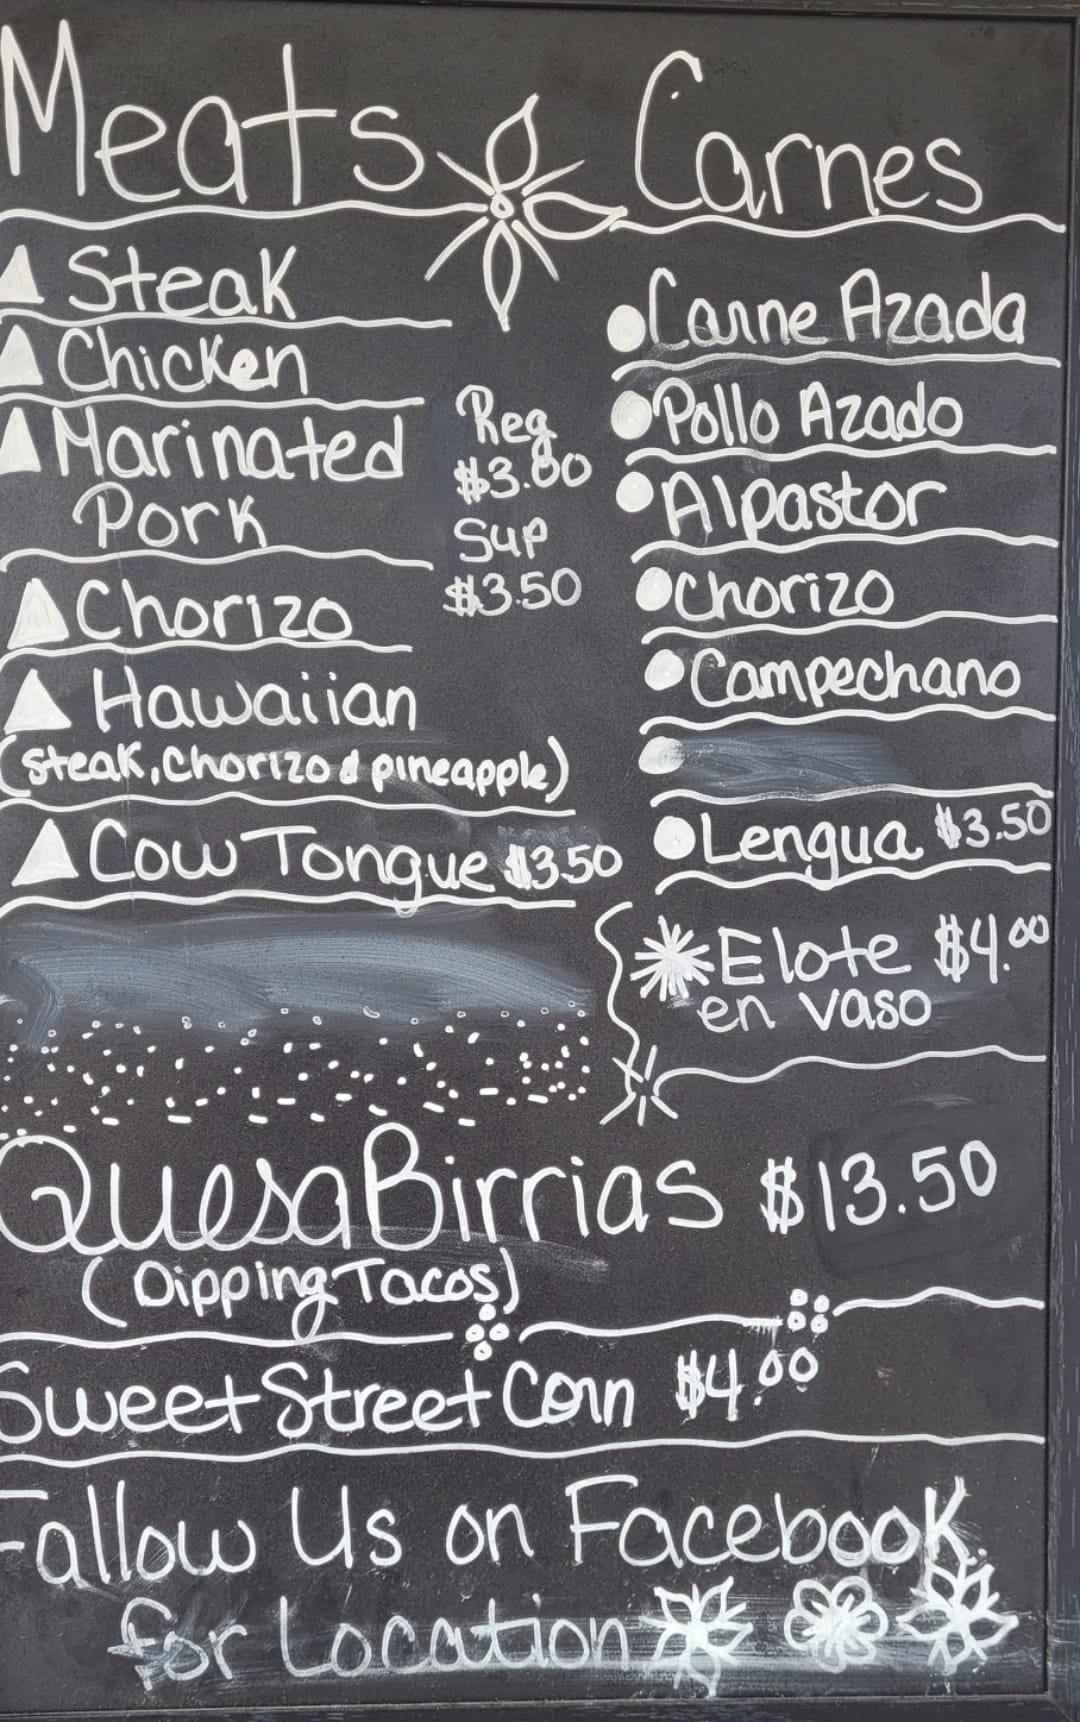 Meats
Steak
Chicken
Marinated
Pork
Chorizo
Hawaiian
(Steak, Chorizo & pineapple)
Cow Tongue $3.50
Reg
$3.00
Sup
$3.50
Carnes
Carne Azada
Pollo Azado
Alpastor
Chorizo
Campechano
Lengua $3.50
Elote $4.00
en vaso
QuesaBirrias $13.50
(Dipping Tacos)
Sweet Street Corn $4.00
Fallow Us on Facebook
for Location